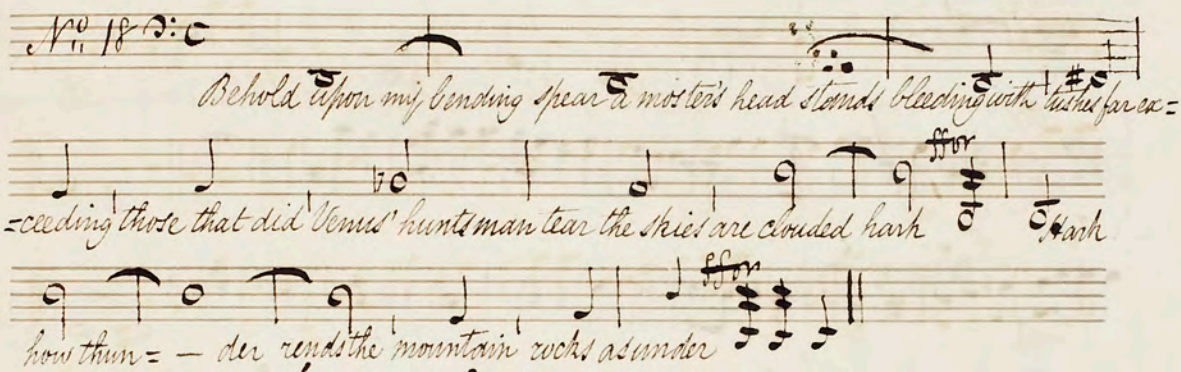 No. 18
Behold upon my bending spear a moster's head stands bleeding with tushes far ex=
ffor
=ceeding those that did Venus' huntsman tear the skies are clouded hark Hark
ffor
how thun= - der rends the mountain rocks asunder